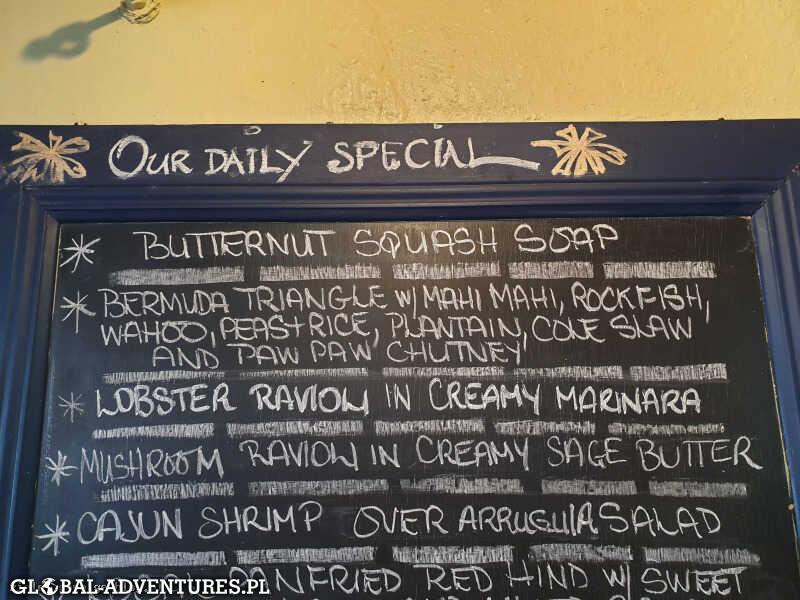 OUR DAILY SPECIAL
BUTTERNUT SQUASH SOAP
BERMUDA TRIANGLE W/ MAHI MAHI, ROCKFISH,
WAHOO, PEAS + RICE, PLANTAIN, COLE SLAW
AND PAW PAW CHUTNEY
LOBSTER RAVIOLI IN CREAMY MARINARA
MUSHROOM RAVIOLI IN CREAMY SAGE BUTTER
CAJUN SHRIMP OVER ARRUGULA SALAD
PANFRIED RED HIND W/ SWEET
GLOBAL-ADVENTURES.PL